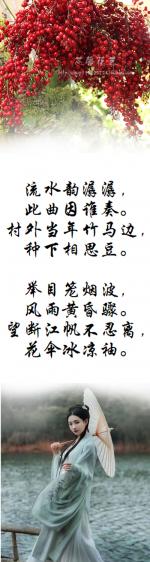 流水韵潺潺，
此曲因谁奏。
村外当年竹马边，
种下相思豆。
举目笼烟波，
风雨黄昏骤。
望断江帆不忍离，
花伞冰凉袖。